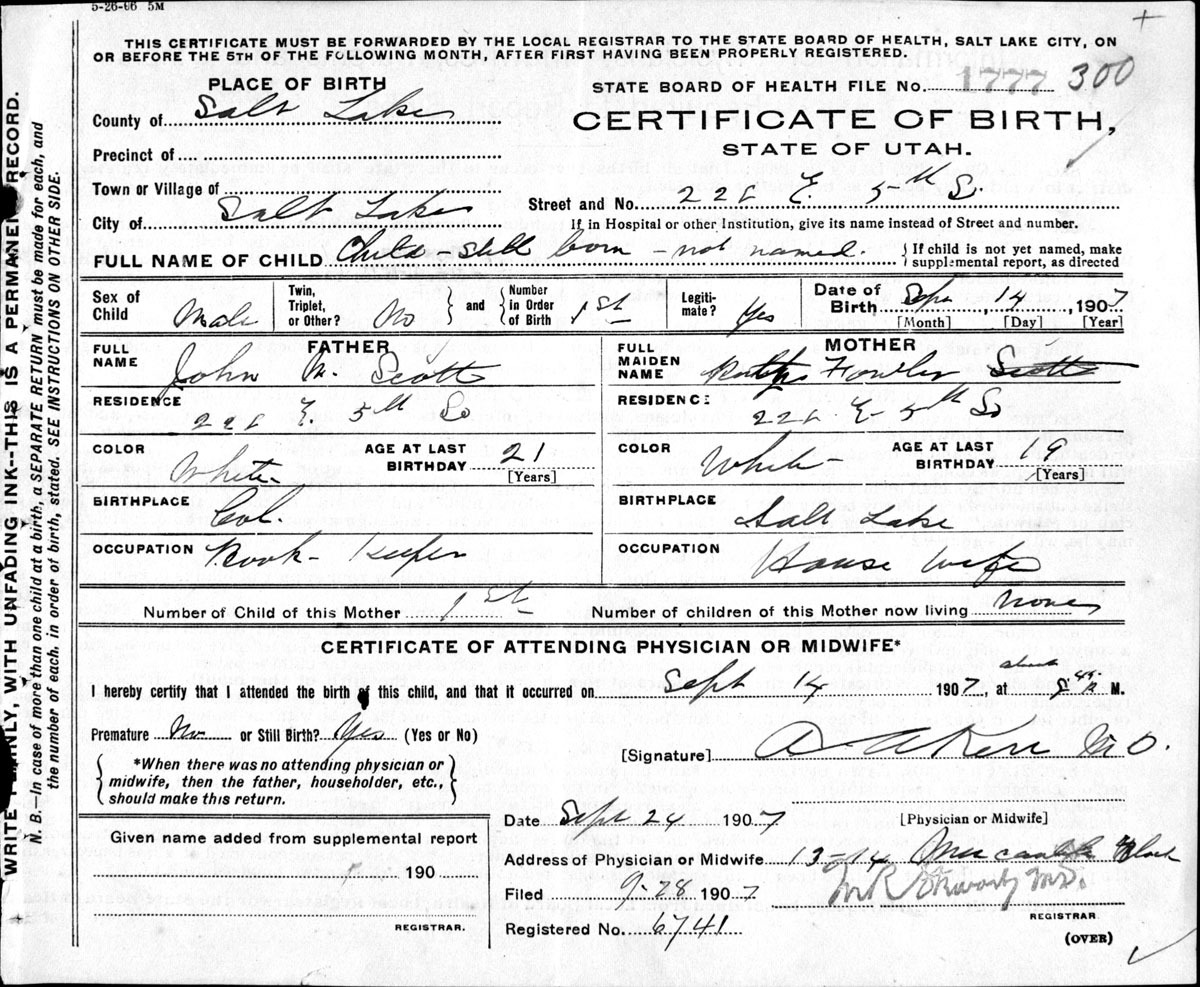 5-26-06 5M
THIS CERTIFICATE MUST BE FORWARDED BY THE LOCAL REGISTRAR TO THE STATE BOARD OF HEALTH, SALT LAKE CITY, ON
OR BEFORE THE 5TH OF THE FOLLOWING MONTH, AFTER FIRST HAVING BEEN PROPERLY REGISTERED.
PLACE OF BIRTH
STATE BOARD OF HEALTH FILE No. 1777 300
County of Salt Lake
CERTIFICATE OF BIRTH,
STATE OF UTAH.
Precinct of
Town or Village of
City of Salt Lake
Street and No. 226 E. 5th So
If in Hospital or other Institution, give its name instead of Street and number.
FULL NAME OF CHILD Child - still born - not named. } If child is not yet named, make
supplemental report, as directed
Sex of Child Male
Twin, Triplet, or Other? No
and
Number in Order of Birth 1st
Legitimate? Yes
Date of Birth Sept, 14, 1907
[Month] [Day] [Year]
FATHER
FULL NAME John M. Scott
RESIDENCE 226 E. 5th So
COLOR White
AGE AT LAST BIRTHDAY 21
[Years]
BIRTHPLACE Col.
OCCUPATION Book-Keeper
MOTHER
FULL MAIDEN NAME Fowler Scott
RESIDENCE 226 E. 5th So
COLOR White
AGE AT LAST BIRTHDAY 19
[Years]
BIRTHPLACE Salt Lake
OCCUPATION House wife
Number of Child of this Mother 1st
Number of children of this Mother now living none
CERTIFICATE OF ATTENDING PHYSICIAN OR MIDWIFE*
about
I hereby certify that I attended the birth of this child, and that it occurred on Sept 14 1907, at M.
Premature No or Still Birth? Yes (Yes or No)
[Signature] M.D.
*When there was no attending physician or
midwife, then the father, householder, etc.,
should make this return.
Date Sept 24 1907
[Physician or Midwife]
Given name added from supplemental report
190
REGISTRAR.
Address of Physician or Midwife 13-14 Block
Filed 9-28 1907
M.D.
REGISTRAR
Registered No. 6741
(OVER)
WRITE PLAINLY, WITH UNFADING INK--THIS IS A PERMANENT RECORD.
N. B.—In case of more than one child at a birth, a SEPARATE RETURN must be made for each, and
the number of each, in order of birth, stated. SEE INSTRUCTIONS ON OTHER SIDE.